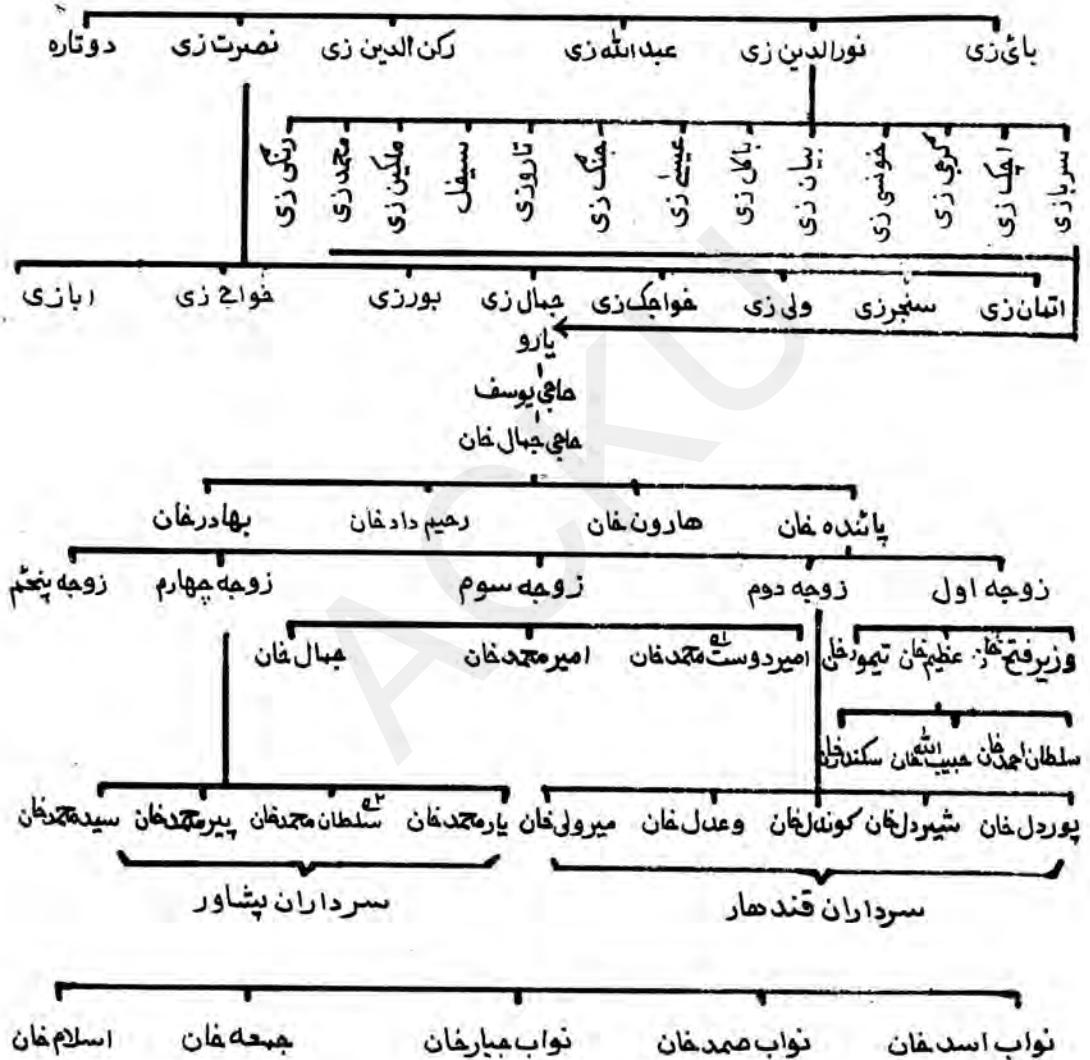 بائ زی نورالدین زی عبدالله زی رکن الدین زی نصرت زی دوتاره
سربازی اچک زی گرجی زی خونسی زی بیان زی باکل زی عیسیٰ زی جنگ زی تاروزی سیفل ملکین زی محمد زی رنگی زی
اتمان زی سنجرزی ولی زی خواجک زی جمال زی بورزی خواجے زی ابازی
یارو
حاجی یوسف
حاجی جمال خان
پائنده خان هارون خان رحیم داد خان بهادرخان
زوجه اول زوجه دوم زوجه سوم زوجه چهارم زوجه پنجم
وزیر فتح خان عظیم خان تیمورخان امیر دوست محمد خان امیر محمد خان جمال خان
سلطان احمد خان حبیب الله خان سکندر خان
پوردل خان شیردل خان کوندل خان وعدل خان میرولی خان یار محمد خان سلطان محمد خان پیر محمد خان سید محمد خان
سرداران قندهار سرداران پشاور
نواب اسد خان نواب صمد خان نواب جبار خان جمعه خان اسلام خان
ACKU